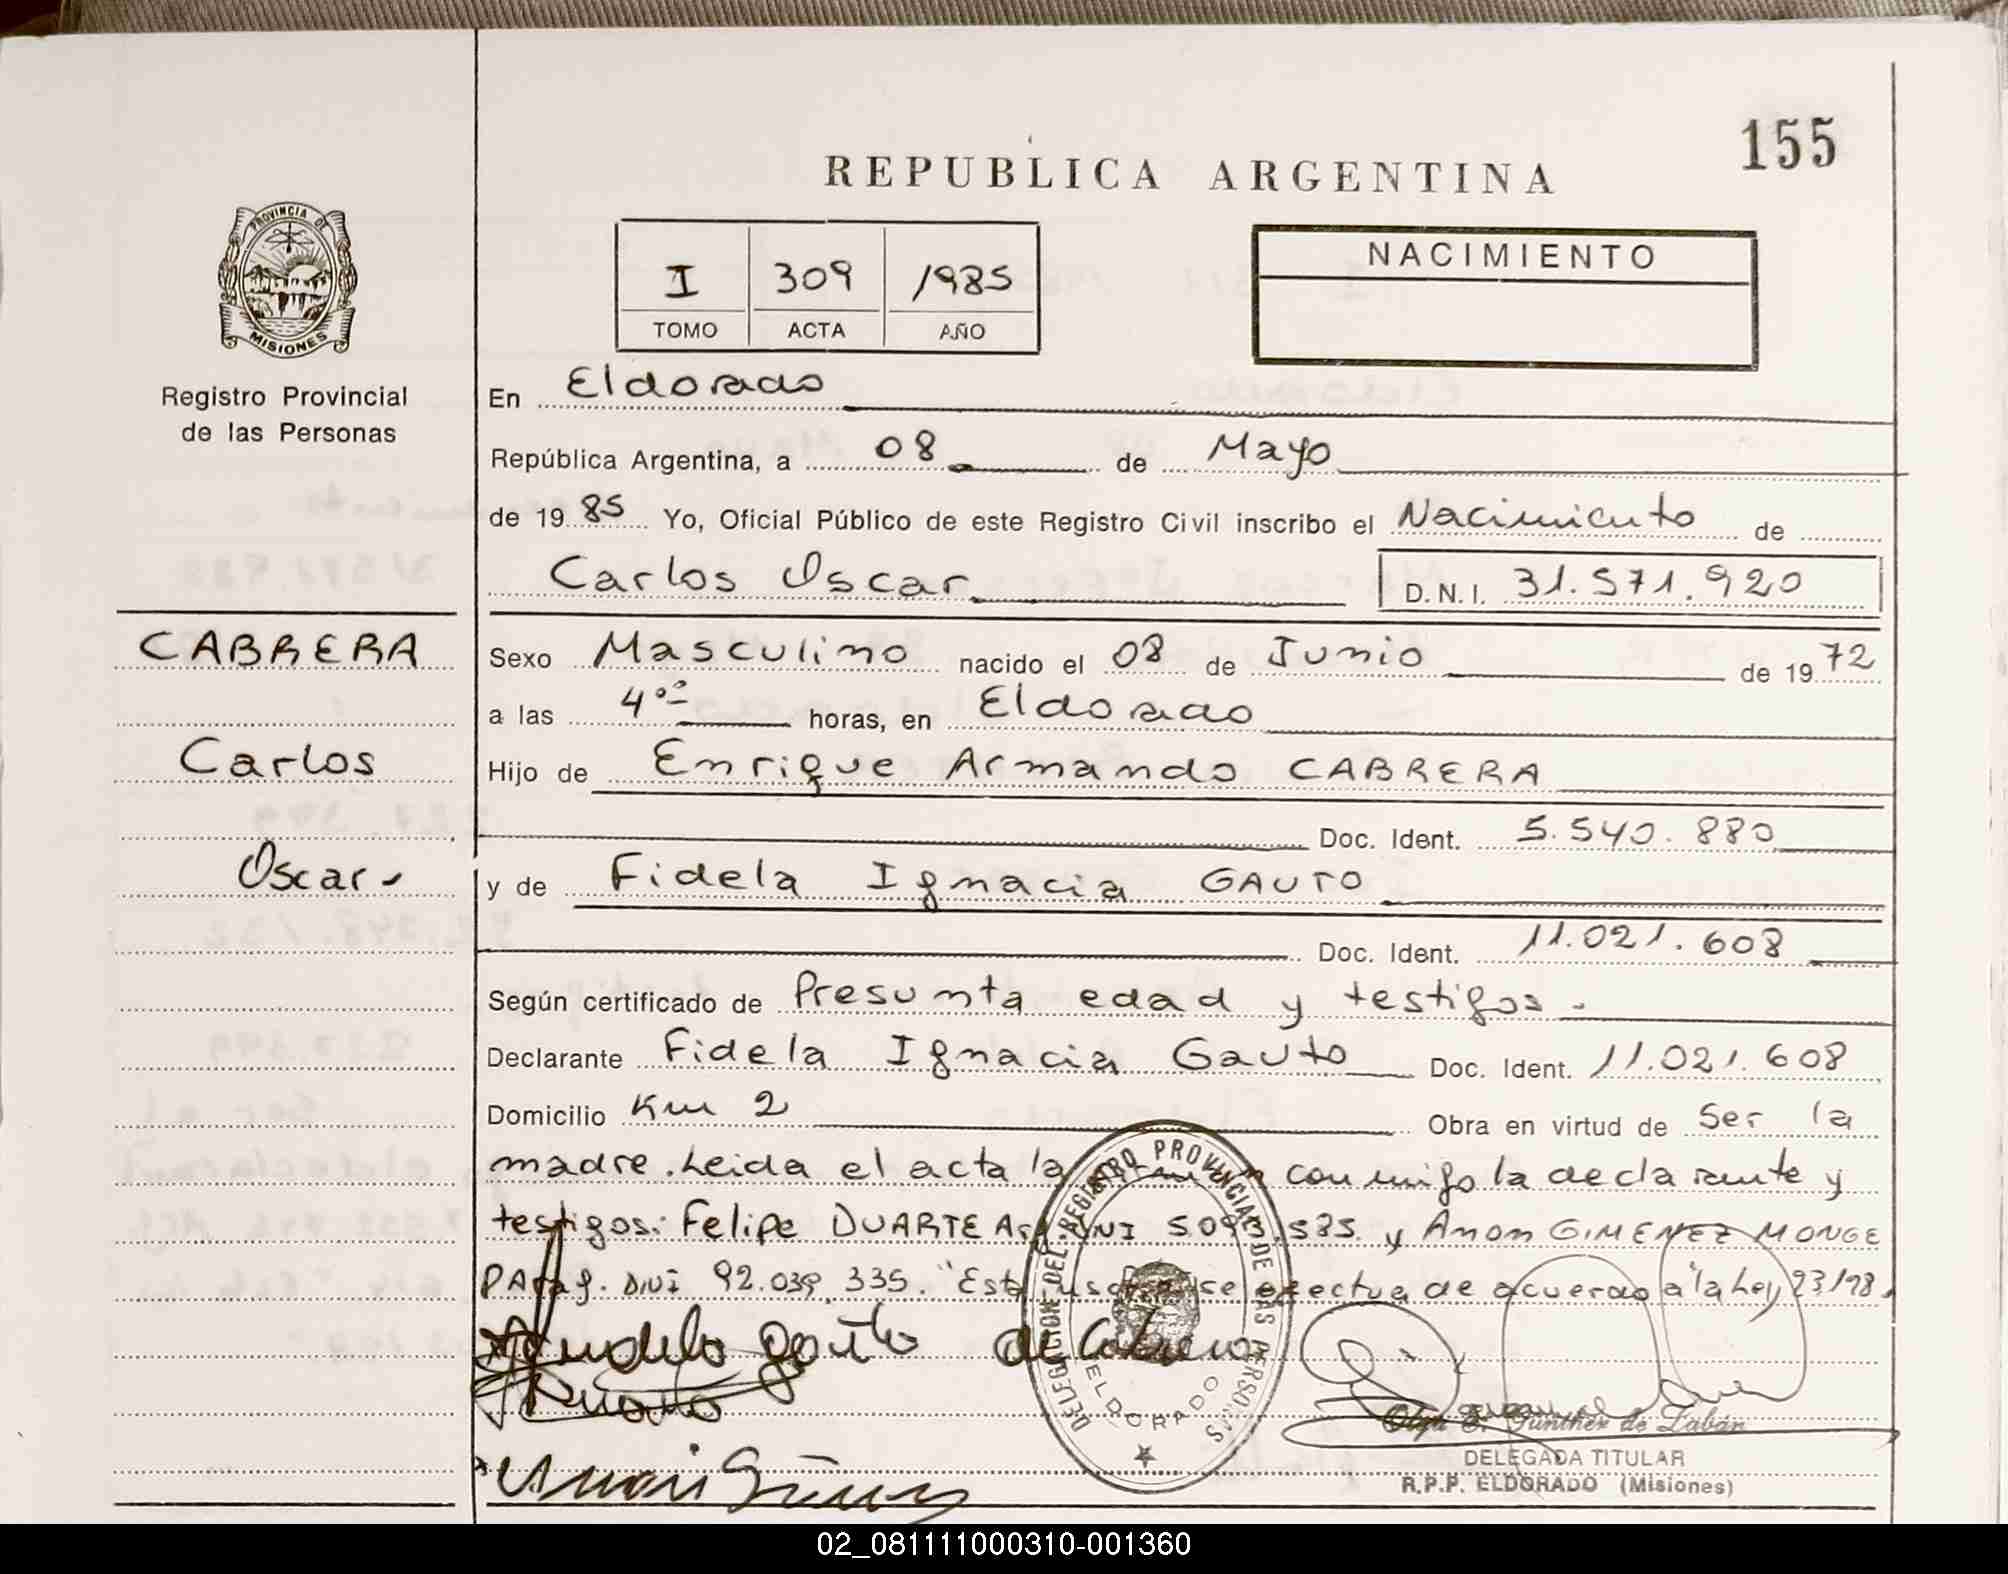 155
REPUBLICA ARGENTINA
PROVINCIA DE
MISIONES
Registro Provincial
de las Personas
I 309 1985
TOMO ACTA AÑO
NACIMIENTO
En Eldorado
República Argentina, a 08 de Mayo
de 1985 Yo, Oficial Público de este Registro Civil inscribo el Nacimiento de
Carlos Oscar D.N.I. 31.571.920
CABRERA
Carlos
Oscar
Sexo Masculino nacido el 08 de Junio de 1972
a las 4°° horas, en Eldorado
Hijo de Enrique Armando CABRERA
Doc. Ident. 5.540.880
y de Fidela Ignacia GAUTO
Doc. Ident. 11.021.608
Según certificado de Presunta edad y testigos.
Declarante Fidela Ignacia Gauto Doc. Ident. 11.021.608
Domicilio Km 2 Obra en virtud de Ser la
madre. Leida el acta la conmigo la declarante y
testigos: Felipe DUARTE DNI y Anon GIMENEZ MONGE
Parag. DNI 92.039.335. "Esta se efectua de acuerdo a la Ley
gauto de Cabrera
DELEGACION DEL REGISTRO PROVINCIAL DE LAS PERSONAS
ELDORADO
Olga E. Günther de Zabán
DELEGADA TITULAR
R.P.P. ELDORADO (Misiones)
02_081111000310-001360